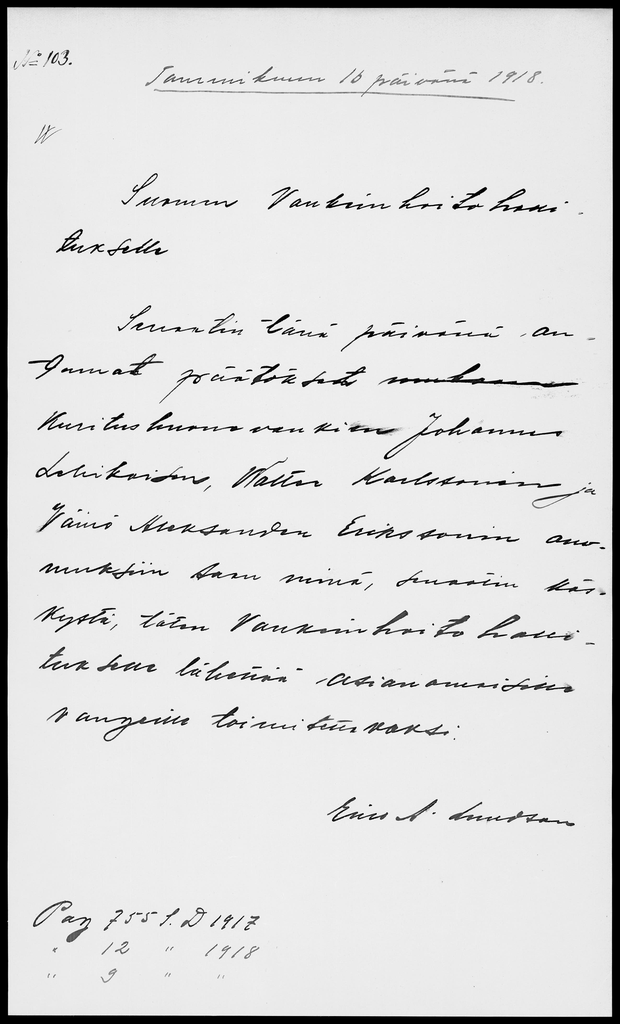 No 103.
Tammikuun 16 päivänä 1918.
Suomen Vankeinhoitohalli-
tukselle
Senaatin tänä päivänä an-
tamat päätökset
Kuritushuonevankien Johannes
Lehikoisen, Walter Karlssonin ja
Väinö Aleksander Erikssonin ano-
muksiin saan minä, senaatin käs-
kystä, täten Vankeinhoitohalli-
tukselle lähettää asianomaisille
vangeille toimitettavaksi.
Pag 755 S.D 1917
" 12 " 1918
" 9 " "